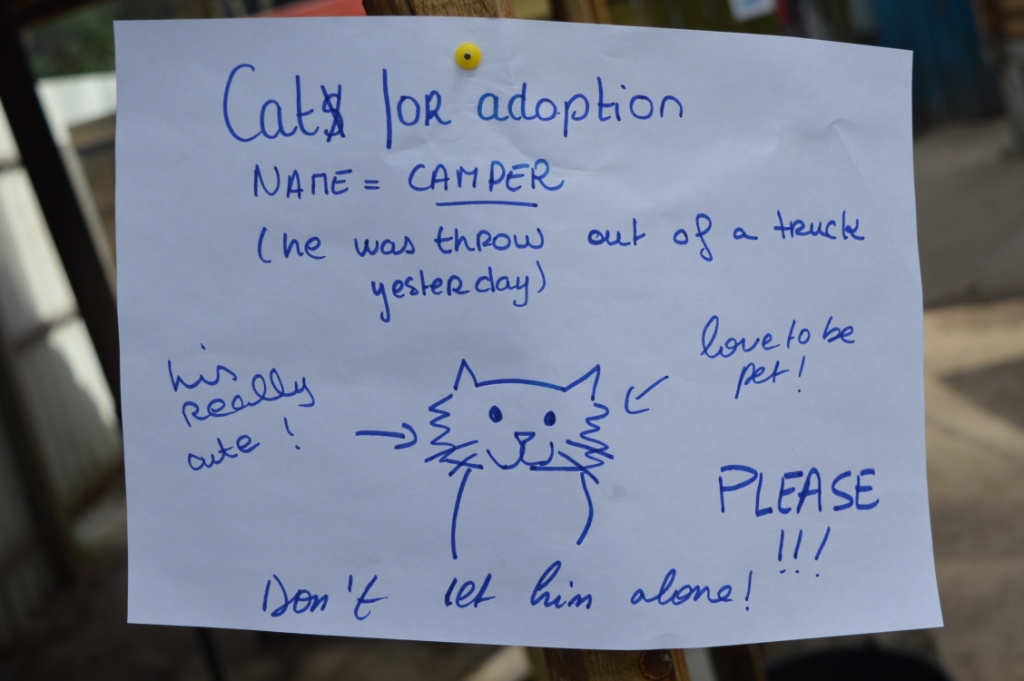 Cat for adoption
NAME = CAMPER
(he was throw out of a truck
yesterday)
his
really
cute !
love to be
pet !
PLEASE
!!!
Don't let him alone !